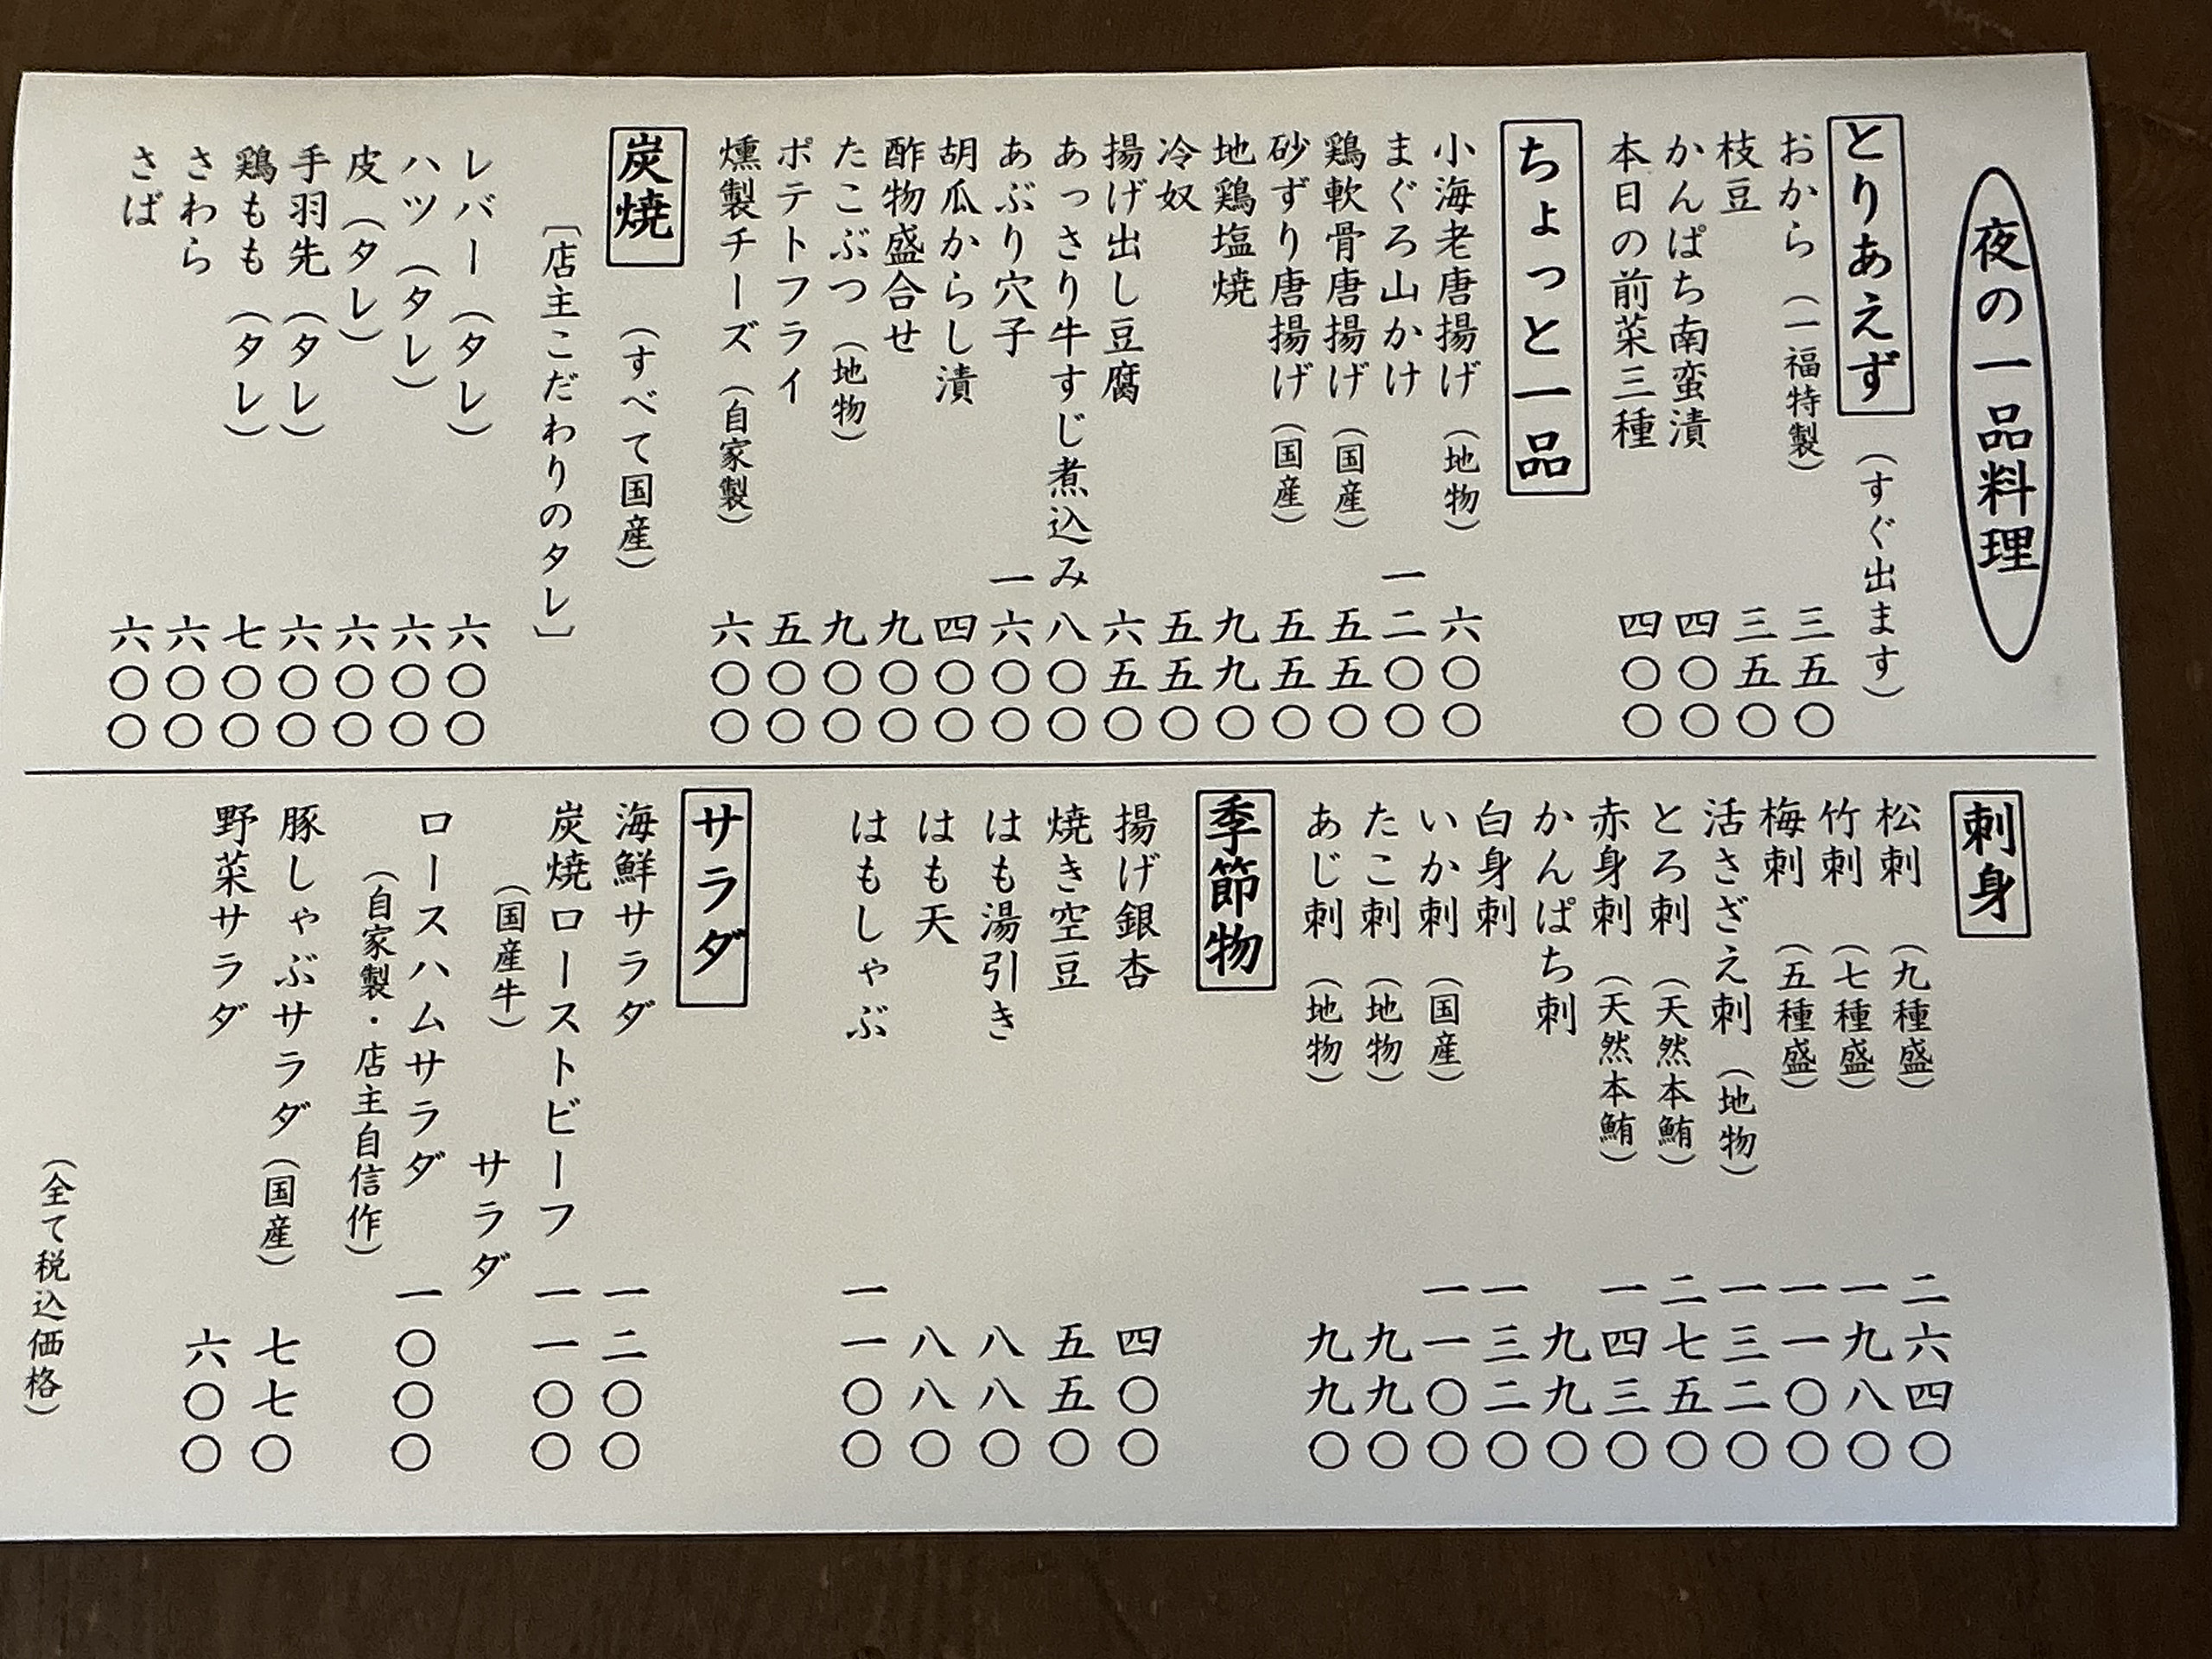 夜の一品料理
とりあえず（すぐ出ます）
おから（一福特製）三五〇
枝豆 三五〇
かんぱち南蛮漬 四〇〇
本日の前菜三種 四〇〇
ちょっと一品
小海老唐揚げ（地物）六〇〇
まぐろ山かけ 一二〇〇
鶏軟骨唐揚げ（国産）五五〇
砂ずり唐揚げ（国産）五五〇
地鶏塩焼 九九〇
冷奴 五五〇
揚げ出し豆腐 六五〇
あっさり牛すじ煮込み 八〇〇
あぶり穴子 一六〇〇
胡瓜からし漬 四〇〇
酢物盛合せ 九〇〇
たこぶつ（地物）九〇〇
ポテトフライ 五〇〇
燻製チーズ（自家製）六〇〇
炭焼（すべて国産）
［店主こだわりのタレ］
レバー（タレ）六〇〇
ハツ（タレ）六〇〇
皮（タレ）六〇〇
手羽先（タレ）六〇〇
鶏もも（タレ）七〇〇
さわら 六〇〇
さば 六〇〇
刺身
松刺（九種盛）二六四〇
竹刺（七種盛）一九八〇
梅刺（五種盛）一一〇〇
活さざえ刺（地物）一三二〇
とろ刺（天然本鮪）二七五〇
赤身刺（天然本鮪）一四三〇
かんぱち刺 九九〇
白身刺 一三二〇
いか刺（国産）一一〇〇
たこ刺（地物）九九〇
あじ刺（地物）九九〇
季節物
揚げ銀杏 四〇〇
焼き空豆 五五〇
はも湯引き 八八〇
はも天 八八〇
はもしゃぶ 一一〇〇
サラダ
海鮮サラダ 一二〇〇
炭焼ローストビーフ 一一〇〇
（国産牛）サラダ
ロースハムサラダ 一〇〇〇
（自家製・店主自信作）
豚しゃぶサラダ（国産）七七〇
野菜サラダ 六〇〇
（全て税込価格）